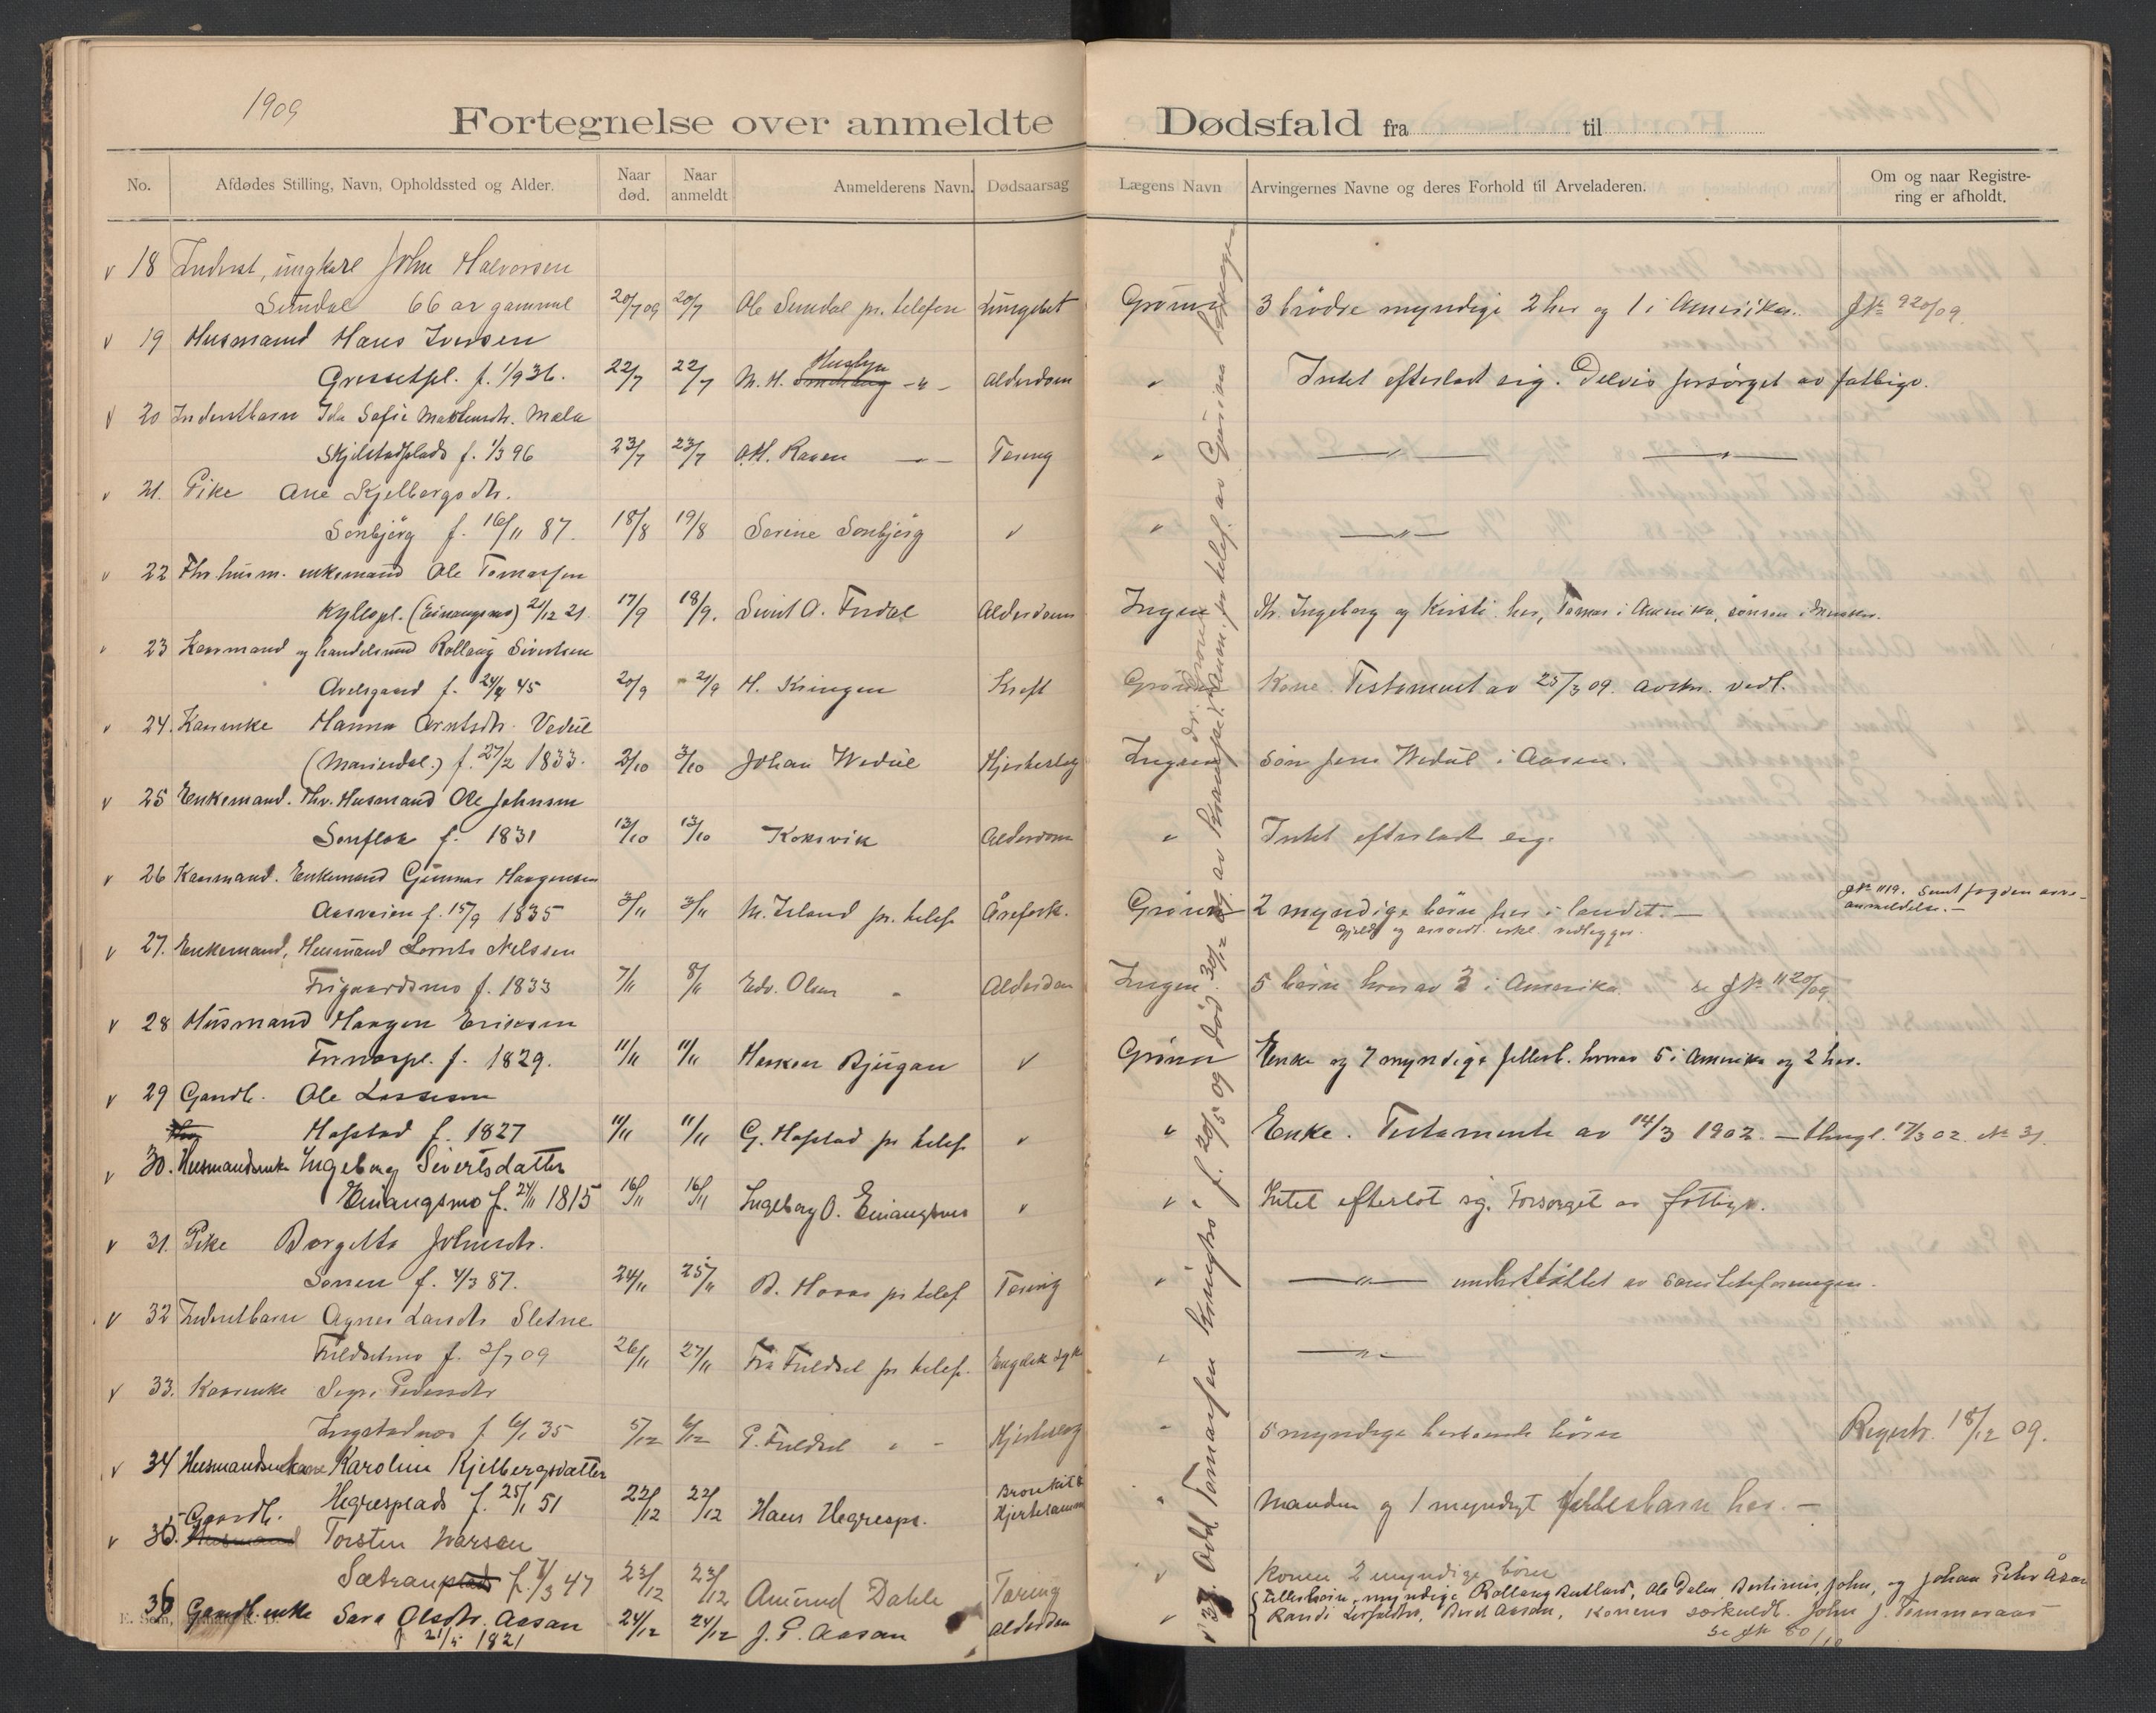 1909
Fortegnelse over anmeldte Dødsfald fra til
No. Afdødes Stilling, Navn, Opholdssted og Alder. Naar død. Naar anmeldt Anmelderens Navn. Dødsaarsag Lægens Navn Arvingernes Navne og deres Forhold til Arveladeren. Om og naar Registrering er afholdt.
18 Inderst, ungkarl John Halvorsen
Sundal 66 ar gammel 20/7 09 20/7 Ole Sundal pr. telefon Grønn 3 brødre myndige 2 her og 1 i Amerika. J№ 920/09
19 Husmand Hans Iversen
Gressetpl. f. 1/9 36. 22/7 22/7 M. H. Huslyn -"- Alderdom " Intet efterladt sig. Delvis forsørget av fattigv.
20 Inderstbarn Ida Sofie Mala
Skjelstadplads f. 1/3 96 23/7 23/7 O.H. Raaen -"- Tæring " -"- -"-
21. Pike Ane Kjelbergsdtr.
Sonbjørg f. 16/11 87. 18/8 19/8 Serine Sonbjørg " " -"-
22 Fhv. husm. enkemand Ole Tomassen
Kyllopl. (Einangsmo) 21/12 21. 17/9 18/9. A. Alderdom Ingen Dtr. Ingeborg og Kirsti her, Tomas i Amerika,
23 Kaarmand og handelsmand Rollaug Sivertsen
Avelsgaard f. 24/4 45 20/9 21/9 H. Kringen Kreft Grønn Kone. Testament av 25/3 09. Avskr. vedl.
24. Kaarenke Hanna Arntsdtr. Vedul
(Mariendal.) f. 27/2 1833. 2/10 3/10 Johan Wedul Hjerteslag Ingen Søn Jens Wedul i Aasen.
25 Enkemand. Fhv. Husmand Ole Johnsen
Sonflok f. 1831 13/10 13/10 Koksvik Alderdom " Intet efterladt sig.
26 Kaarmand. Enkemand Gunnar Haagensen
Aasveien f. 15/9 1835 3/11 3/11 M. pr. telef. Grønn 2 myndige børn her i landet. - J№ 1119. Sendt fogden anmeldelse. -
Gjelds og vedlegges.
27. Enkemand, Husmand Lornts Nelssen
Trøgaardsmo f. 1833 7/11 8/11 Edv. Olsen " Alderdom Ingen 5 børn hvorav 3 i Amerika se J№ 1120/09
28 Husmand Haagen Eriksen
f. 1829. 11/11 11/11 Haakon Bjugan " Grønn Enke og 7 myndige fellesb. hvorav 5 i Amerika og 2 her.
29 Gaardb. Ole Lassesen
Hofstad f. 1827 11/11 11/11 G. Hofstad pr telef. " " Enke. Testamente av 14/3 1902. - thingl. 17/3 02. № 31.
30. Husmandsenke Ingeborg Sivertsdatter
Einangsmo f. 24/11 1815 16/11 16/11 Ingeborg O. Einangsmo " " Intet efterlot sig. Forsørget av fattigv.
31. Pike Borgitta Johnsdtr.
Sonen f. 4/3 87. 24/11 25/11 B. Hovas pr telef Tæring " -"- understøttet av Sanitetsforeningen.
32 Inderstbarn Agnes Larsdtr Sletne
Fuldsetmo f. 3/7 09 26/11 27/11 Fra Fuldset pr telef. Engelsk syk " -"-
33. Kaarenke Segri Pedersdtr
Ingstadnes f. 6/1 35 5/12 6/12 P. Fuldset " " Hjerteslag " 5 myndige børn Registr. 18/12 09.
34 Husmandskone Karoline Kjelbergsdatter
Hegresplads f. 25/1 51 22/12 22/12 Hans Hegrespl. Bronkit & " Manden og 1 myndigt fellesbarn her. -
35. Gaardb. Husmand Torsten Ivarsen
Sætranplads f. 7/3 47 23/12 23/12 Amund Dahle Tæring " Konen 2 myndige børn
36 Gaardb.enke Sara Olsdtr. Aasan 24/12 24/12 J. P. Aasan Alderdom " Fellesbørn, myndige Rollaug Ole Dalen, John, og Johan Peter Åsan
f 21/5 1821 Randi Berit Aasan, Konens særkuldb. John J. Tømmeraas
se J№ 80/10
37. Odd Tomassen Kringkro f. 20/5 09 død 30/12 09 av Krampe. Anm. pr telef. av Gjørine
dr. Grønn